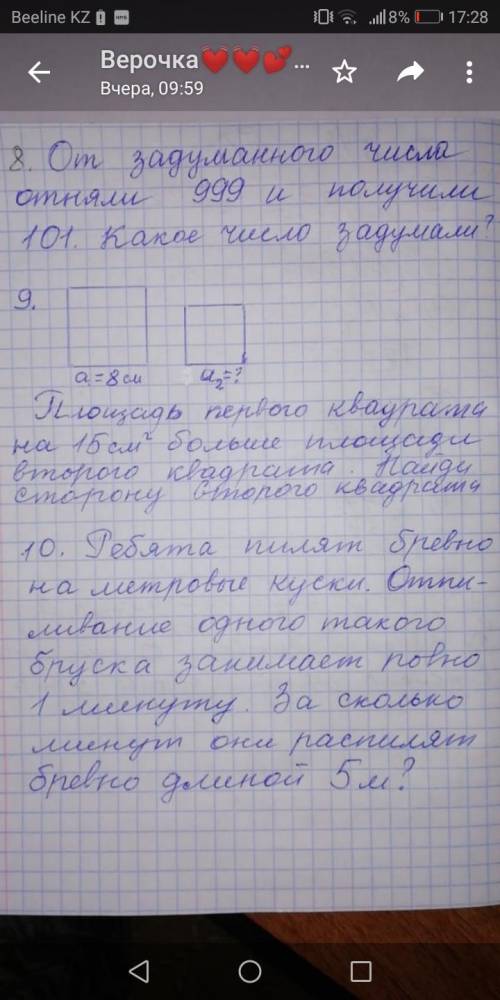 Beeline KZ 8% 17:28
Верочка❤️❤️💕...
Вчера, 09:59
8. От задуманного числа
отняли 999 и получили
101. Какое число задумали?
9.
a = 8 см a₂ = ?
Площадь первого квадрата
на 15 см² больше площади
второго квадрата. Найди
сторону второго квадрата
10. Ребята пилят бревно
на метровые куски. Отпи-
ливание одного такого
бруска занимает ровно
1 минуту. За сколько
минут они распилят
бревно длиной 5 м?